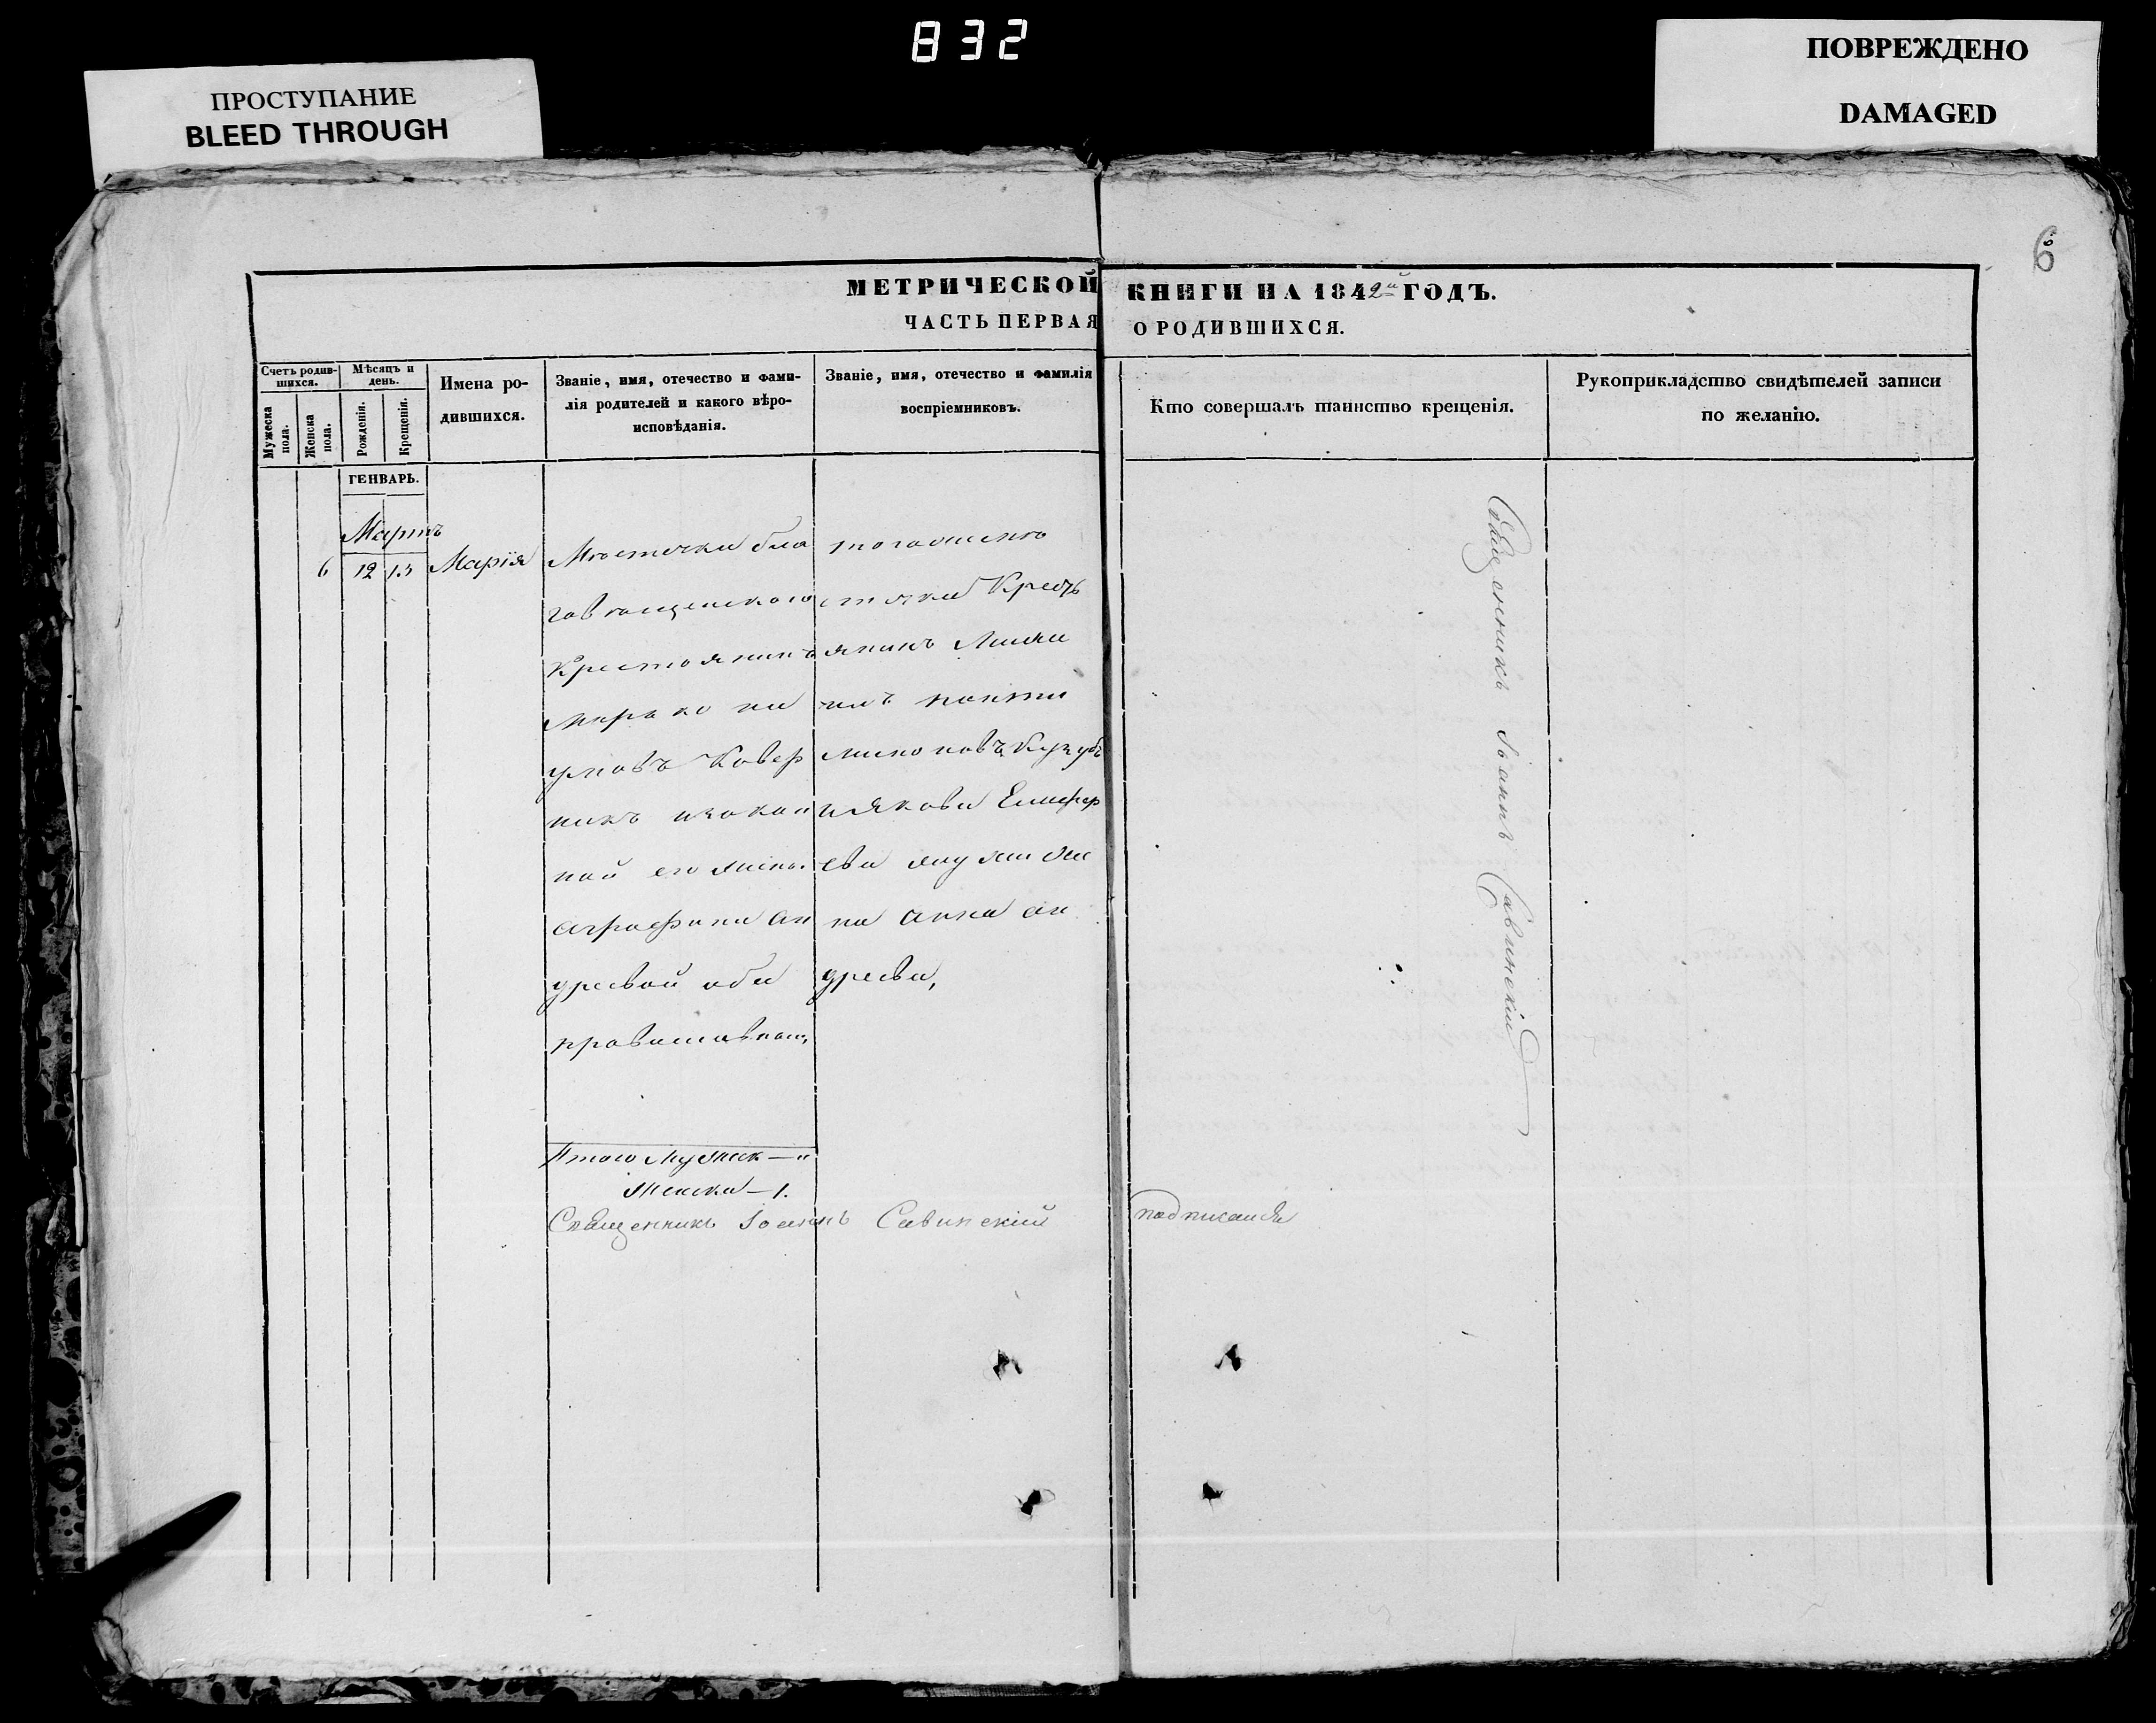 832
ПРОСТУПАНИЕ
BLEED THROUGH
ПОВРЕЖДЕНО
DAMAGED
6
МЕТРИЧЕСКОЙ КНИГИ НА 1842й ГОДЪ.
ЧАСТЬ ПЕРВАЯ О РОДИВШИХСЯ.
Счетъ родив-
шихся.
Мужеска
пола.
Женска
пола.
Мѣсяцъ и
день.
Рожденія.
Крещенія.
Имена ро-
дившихся.
Званіе, имя, отечество и фами-
лія родителей и какого вѣро-
исповѣданія.
Званіе, имя, отечество и фамилія
воспріемниковъ.
Кто совершалъ таинство крещенія.
Рукоприкладство свидѣтелей записи
по желанію.
ГЕНВАРЬ.
Мартъ
6 12 13 Марія
Мѣстечка бла
говѣщенскаго
Крестьянинъ
Марко на
умовъ Ковер
никъ изакон
ной его жены
аграфина ан
дреевой оба
православные,
тогожмѣ
стечка Кресть
янинъ
Якова
ева
на анна ан
дреева,
Священникъ Іоаннъ Савинскій
Итого Мужеск — "
Женска — 1.
Священникъ Іоаннъ Савинскій подписался